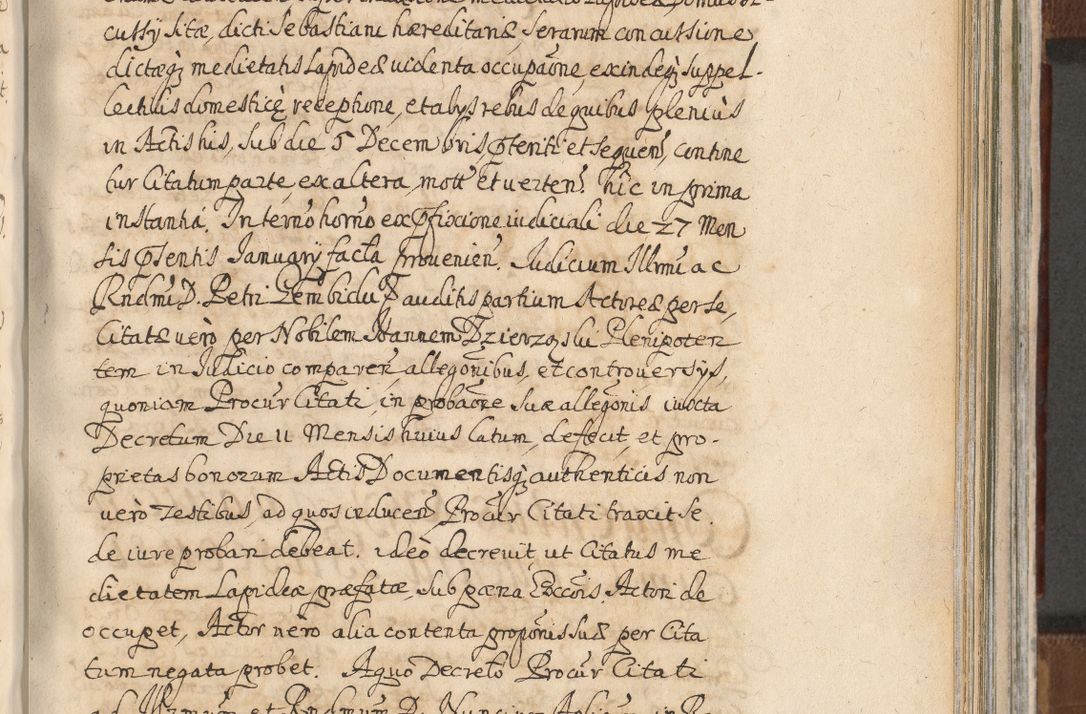 cussy sitæ, dicti Sebastiani hæreditariæ, serarum concussione
dictæq; medietatis Lapideæ videnta occupaõne, exindeq; suppel-
lectilis domesticę receptione, et alys rebus de quibus plenius
in Actis his, sub die 5 Decembris, pñteriti et sequen̄, contine
tur Citatum parte, ex altera, mott̃ et verten̄. hic in prima
instantia. In termo horno ex pfixione iudiciali die 27 Men
sis pñsentis January facta provenien̄. Iudicium Illrmi ac
Rndmi D. Petri Gembicki auditis partium Actoreæ per se,
Citatæ vero per Nobilem Ioannem Dzierząski Plenipoten
tem in Iudicio comparen̄ allegõnibus, et controuersys,
quoniam Procur Citati, in probaõne suæ allegõnis iuxta
Decretum Die 11 Mensis huius latum, defecit, et pro-
prietas bonorum Actis Documentisq; authenticis non
vero Testibus, ad quos inducen̄ Procur Citati traxit se.
de iure probari debeat. ideò decrevit, ut Citatus me
dietatem Lapideæ præfatæ, sub pæna Excõis. Actori de
occupet, Actor vero alia contenta propõnis suæ per Cita
tum negata probet. A quo Decreto Procur Citati
ad Illrmum et Rndmum D. Nuncium